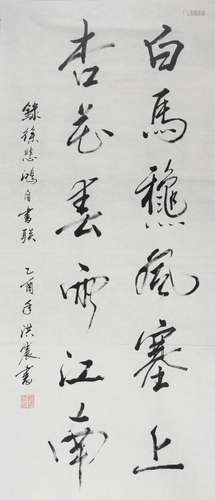 白馬龝風塞上
杏花春雨江南
錄徐悲鴻自書联
乙酉年洪書